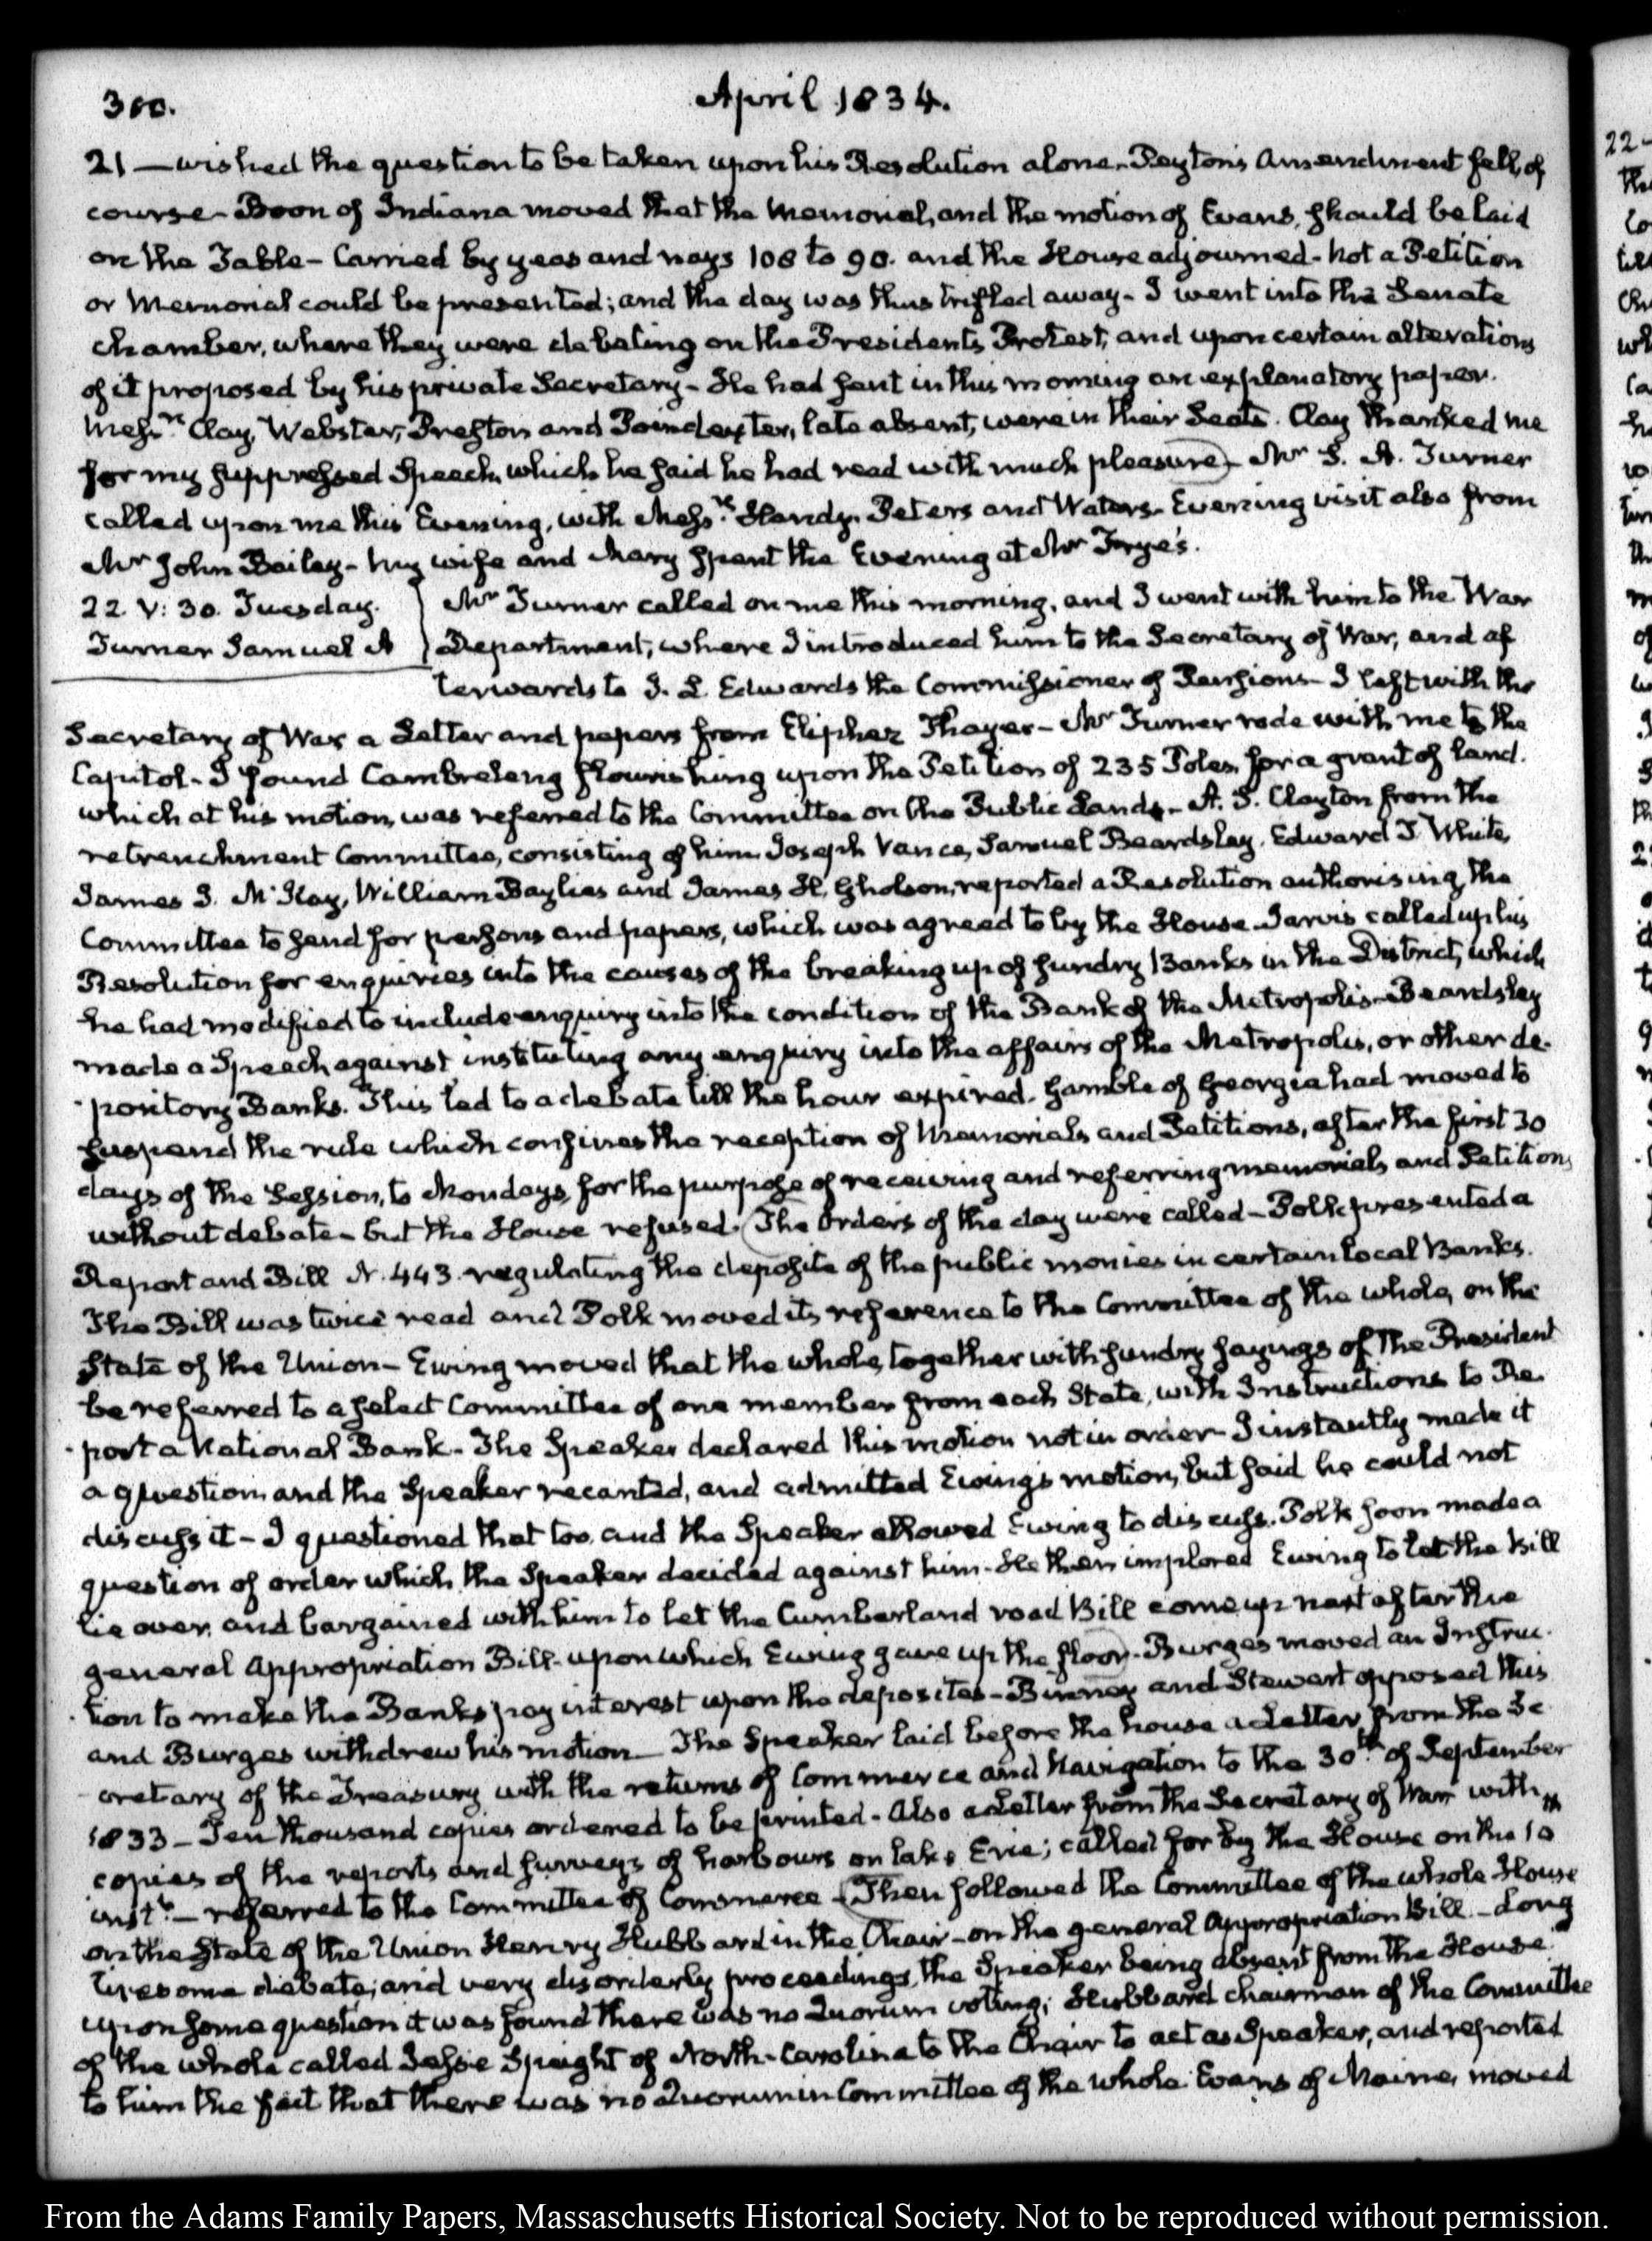 300.
April 1834.
21 — wished the question to be taken upon his Resolution alone - Peyton's Amendment fell, of
course - Boon of Indiana moved that the Memorial, and the motion of Evans, should be laid
on the Table - Carried by yeas and nays 108 to 90. and the House adjourned - Not a Petition
or Memorial could be presented; and the day was thus trifled away - I went into the Senate
chamber, where they were debating on the Presidents Protest, and upon certain alterations
of it proposed by his private Secretary - He had sent in this morning an explanatory paper.
Mess.rs Clay, Webster, Preston and Poindexter, late absent, were in their Seats. Clay thanked me
for my suppressed Speech, which he said he had read with much pleasure - Mr S. A. Turner
called upon me this Evening, with Mess.rs Handy, Peters and Waters - Evening visit also from
Mr John Bailey - My wife and Mary spent the Evening at Mr Frye's.
22. V: 30. Tuesday.
Turner Samuel A
Mr Turner called on me this morning, and I went with him to the War
Department, where I introduced him to the Secretary of War, and af
terwards to J. L. Edwards the Commissioner of Pensions - I left with the
Secretary of War a Letter and papers from Eliphaz Thayer - Mr Turner rode with me to the
Capitol - I found Cambreleng flourishing upon the Petition of 235 Poles, for a grant of land.
which at his motion, was referred to the Committee on the Public Lands - A. S. Clayton from the
retrenchment Committee, consisting of him, Joseph Vance, Samuel Beardsley, Edward D. White,
James I. McKay, William Baylies and James H. Gholson, reported a Resolution authorising the
Committee to send for persons and papers, which was agreed to by the House - Jarvis called up his
Resolution for enquiries into the causes of the breaking up of sundry Banks in the District, which
he had modified to include enquiry into the condition of the Bank of the Metropolis - Beardsley
made a Speech against instituting any enquiry into the affairs of the Metropolis, or other de-
pository Banks. This led to a debate till the hour expired. Gamble of Georgia had moved to
suspend the rule which confines the reception of Memorials and Petitions, after the first 30
days of the Session, to Mondays, for the purpose of receiving and referring memorials and Petitions
without debate - but the House refused. The Orders of the day were called - Polk presented a
Report and Bill N. 443. regulating the deposite of the public monies in certain local Banks.
The Bill was twice read and Polk moved its reference to the Committee of the whole, on the
State of the Union - Ewing moved that the whole, together with sundry sayings of the President
be referred to a select Committee of one member from each State, with Instructions to Re-
port a National Bank - The Speaker declared this motion not in order - I instantly made it
a question, and the Speaker recanted, and admitted Ewing's motion, but said he could not
discuss it - I questioned that too, and the Speaker allowed Ewing to discuss. Polk soon made a
question of order which the Speaker decided against him - He then implored Ewing to let the Bill
lie over, and bargained with him to let the Cumberland road Bill come up next after the
general Appropriation Bill - upon which Ewing gave up the floor - Burges moved an Instruc-
tion to make the Banks pay interest upon the deposites - Binney and Stewart opposed this
and Burges withdrew his motion — The Speaker laid before the house a Letter from the Se
cretary of the Treasury with the returns of Commerce and Navigation to the 30th of September
1833 - Ten thousand copies ordered to be printed - Also a Letter from the Secretary of War with
copies of the reports and surveys of harbours on lake Erie; called for by the House on the 10
inst. - referred to the Committee of Commerce - Then followed the Committee of the whole House
on the State of the Union Henry Hubbard in the Chair - on the general Appropriation Bill - Long
tiresome debate, and very disorderly proceedings, the Speaker being absent from the House
upon some question it was found there was no Quorum voting; Hubbard chairman of the Committee
of the whole called Jesse Speight of North-Carolina to the Chair to act as Speaker, and reported
to him the fact that there was no Quorum in Committee of the whole. Evans of Maine, moved
From the Adams Family Papers, Massaschusetts Historical Society. Not to be reproduced without permission.